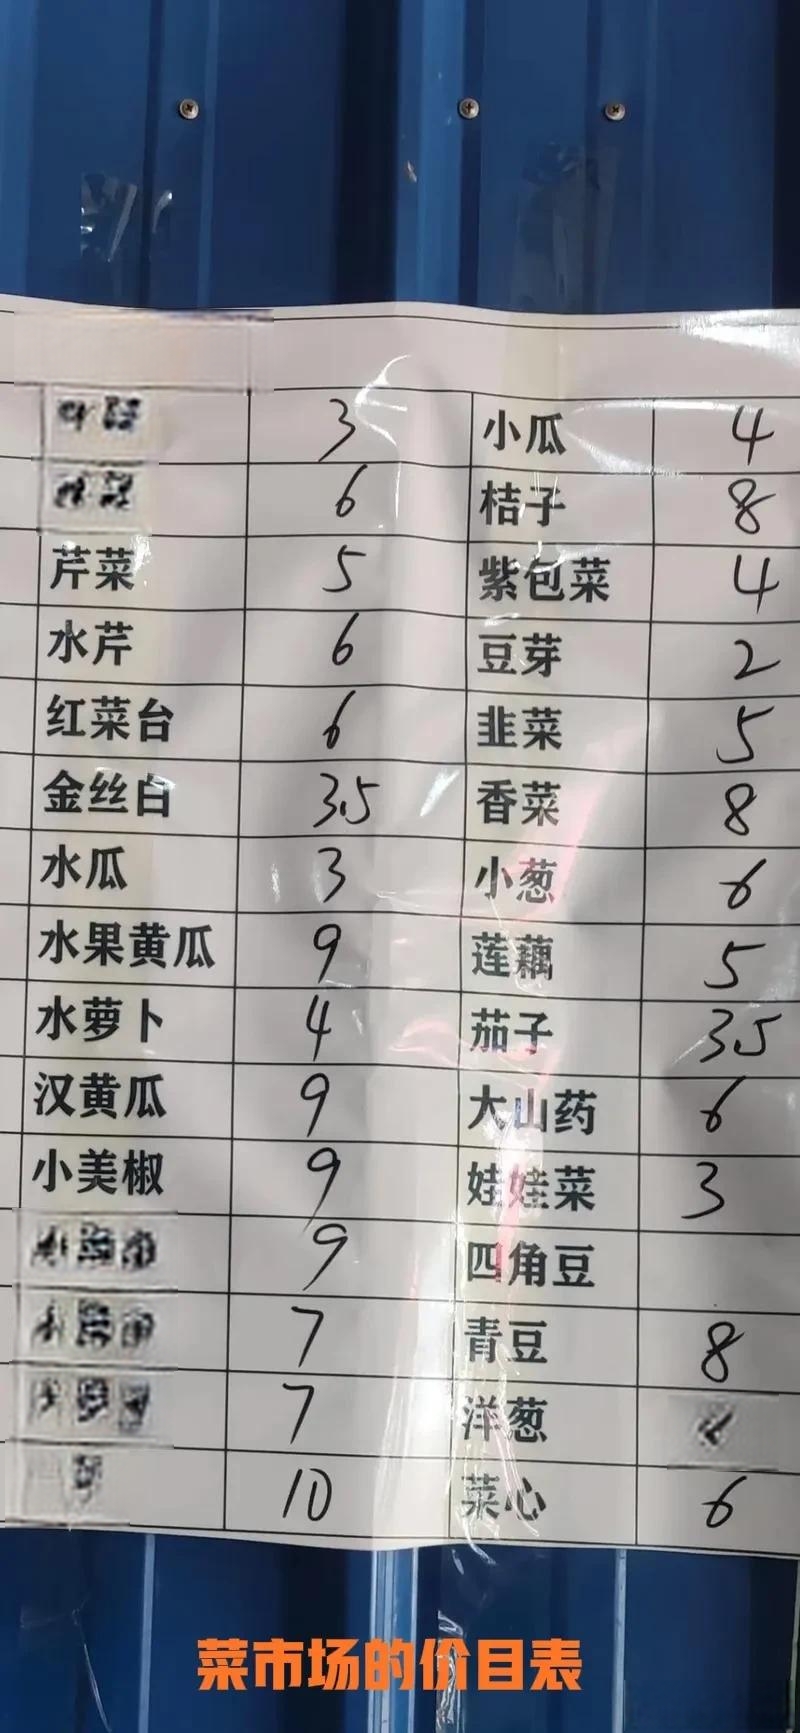 3 小瓜 4
6 桔子 8
芹菜 5 紫包菜 4
水芹 6 豆芽 2
红菜台 6 韭菜 5
金丝白 3.5 香菜 8
水瓜 3 小葱 6
水果黄瓜 9 莲藕 5
水萝卜 4 茄子 3.5
汉黄瓜 9 大山药 6
小美椒 9 娃娃菜 3
9 四角豆
7 青豆 8
7 洋葱
10 菜心 6
菜市场的价目表